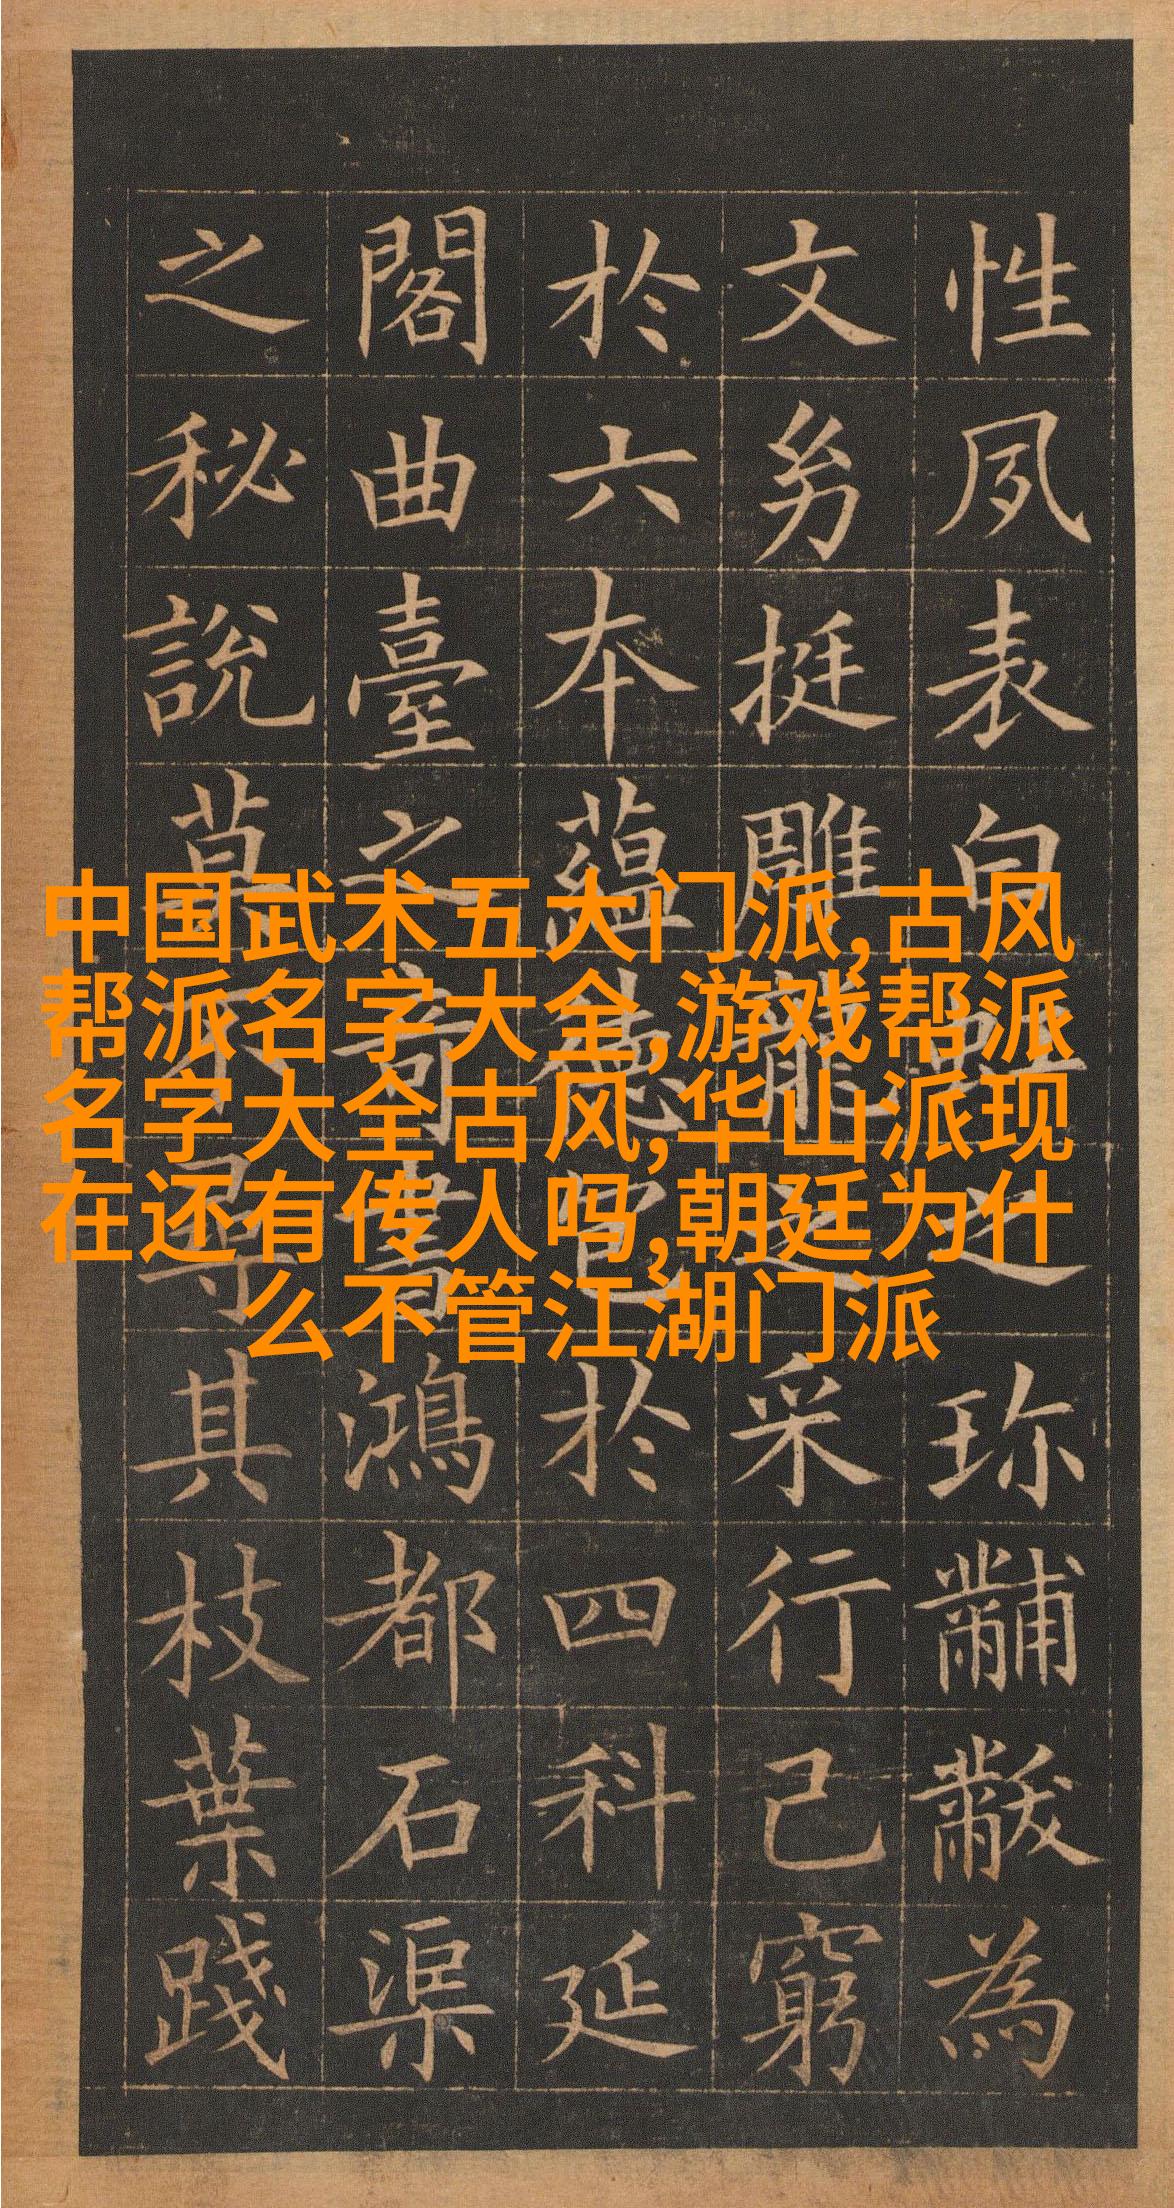 中国武术五大门派,古凤
帮派名字大全,游戏帮派
名字大全古风,华山派现
在还有传人吗,朝廷为什
么不管江湖门派
性夙表白之珍黼黻為
文挺雕龍之采行己窮
於六本蘊德包於四科延
閣曲臺之奇書鴻都石渠
之秘說莫不尋其枝葉踐